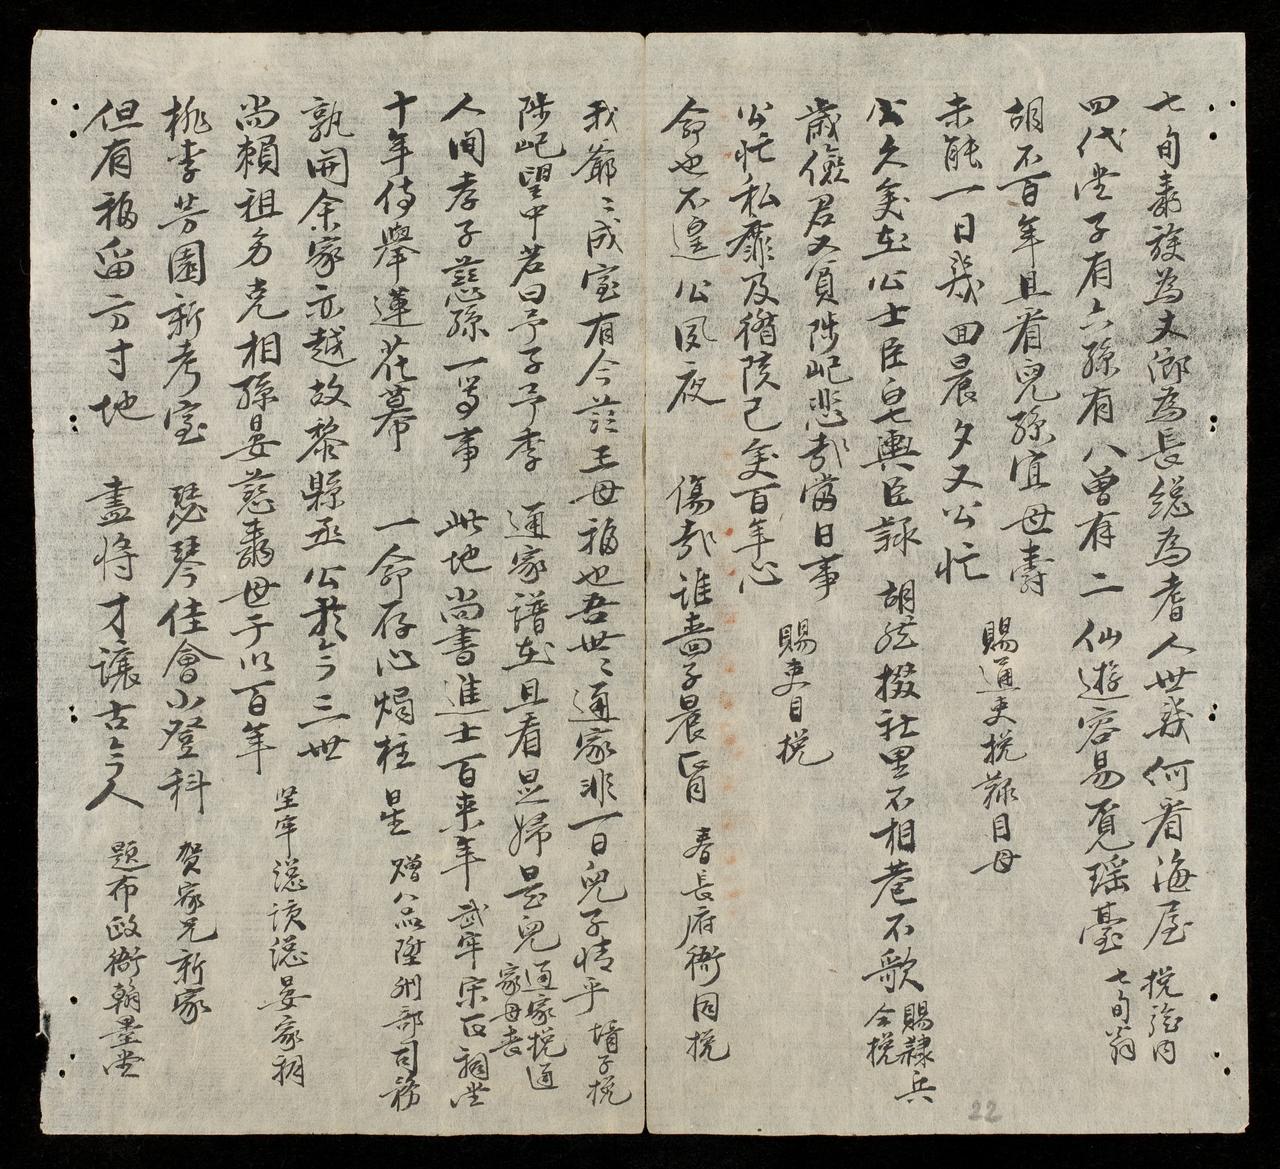 七旬壽族為丈鄉為長總為耆人世幾何看海屋 挽窓內
四代堂子有六孫有八曾有二仙遊容易覓瑤臺 七旬翁
胡不百年且看兒孫宜母壽
未能一日幾回晨夕又公忙 賜通吏挽錄目母
公久矣在公士臣皂輿臣隸 胡然掇社里不相巷不歌 賜隸兵仝挽
歲儉君又貧陟屺悲哉當日事
公忙私靡及循陔已矣百年心 賜吏目挽
命也不遑公夙夜 傷哉誰嗇子晨昏 春長府衙同挽
我爺〻成室有今茲王母福也吾世〻通家非一日兒子情乎 壻子挽
陟屺望中若曰予子予季 通家譜在且看是婦是兒 通家挽通家母喪
人間孝子慈孫一等事 此地尚書進士百來年 武牢宋氏祠堂
十年侍舉蓮花幕 一命存心燭柱星 贈八品陞刑部司務
孰開余家亦越故黎縣丞公於今三世
尚賴祖免克相孫晏慈壽母于以百年 呈牢總該總晏家祠
桃李芳園新考室 瑟琴佳會小登科 賀家兄新家
但有福留方寸地 盡將才讓古今人 題布政衙翰墨堂
22